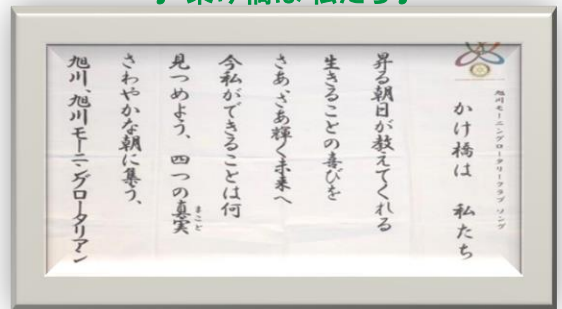 ♪ 架け橋は 私たち♪
旭川モーニングロータリークラブ ソング
かけ橋は 私たち
昇る朝日が教えてくれる
生きることの喜びを
さあ、さあ輝く未来へ
今私ができることは何
見つめよう、四つの真実
まこと
さわやかな朝に集う、
旭川、旭川モーニングロータリアン